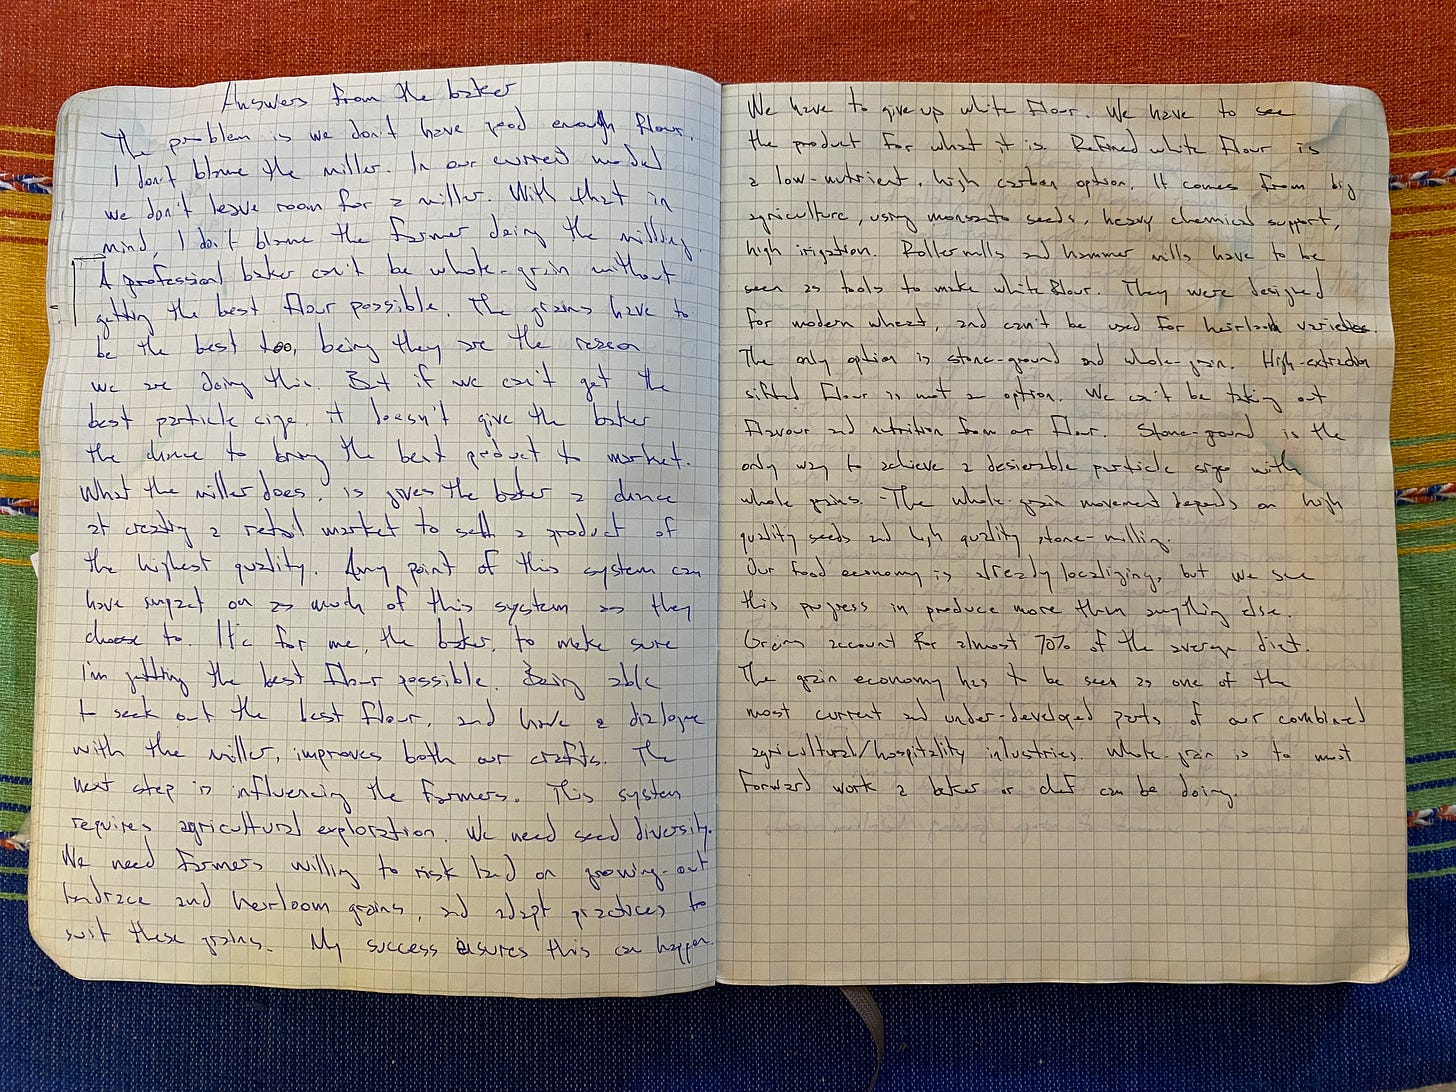 Answers from the baker
The problem is we don't have good enough flour.
I don't blame the miller. In our current model
we don't leave room for a miller. With that in
mind, I don't blame the farmer doing the milling.
A professional baker can't be whole-grain without
getting the best flour possible. The grains have to
be the best too, being they are the reason
we are doing this. But if we can't get the
best particle size, it doesn't give the baker
the chance to bring the best product to market.
What the miller does, is gives the baker a chance
at creating a retail market to sell a product of
the highest quality. Any point of this system can
have impact on as much of this system as they
choose to. It's for me, the baker, to make sure
I'm getting the best flour possible. Being able
to seek out the best flour, and have a dialogue
with the miller, improves both our crafts. The
next step is influencing the farmers. This system
requires agricultural exploration. We need seed diversity.
We need farmers willing to risk land on growing-out
landrace and heirloom grains, and adapt practices to
suit these grains. My success ensures this can happen.
We have to give up white flour. We have to see
the product for what it is. Refined white flour is
a low-nutrient, high carbon option. It comes from big
agriculture, using monsanto seeds, heavy chemical support,
high irigation. Roller mills and hammer mills have to be
seen as tools to make white flour. They were designed
for modern wheat, and can't be used for heirloom varieties.
The only option is stone-ground and whole-grain. High-extraction
sifted flour is not an option. We can't be taking out
flavour and nutrition from our flour. Stone-ground is the
only way to achieve a desierable particle size with
whole grains. The whole-grain movement depends on high
quality seeds and high quality stone-milling.
Our food economy is already localizing, but we see
this progress in produce more than anything else.
Grain account for almost 70% of the average diet.
The grain economy has to be seen as one of the
most current and under-developed parts of our combined
agricultural/hospitality industries. Whole-grain is to most
forward work a baker or chef can be doing.